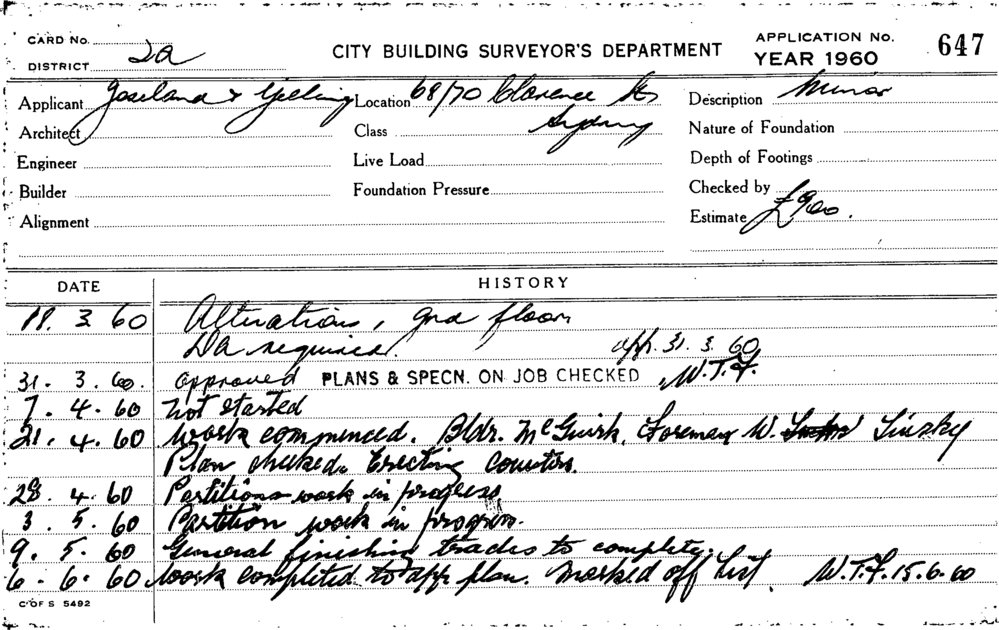 CARD No. 2a CITY BUILDING SURVEYOR'S DEPARTMENT APPLICATION No. 647
DISTRICT YEAR 1960
Applicant Joseland & Gilling Location 68/70 Clarence St Description Minor
Architect Class Sydney Nature of Foundation
Engineer Live Load Depth of Footings
Builder Foundation Pressure Checked by
Alignment Estimate £900.
DATE HISTORY
3 60 Alterations, gnd floor
Da required. app. 31. 3. 60
31. 3. 60. approved PLANS & SPECN. ON JOB CHECKED W.T.F.
7. 4. 60 not started
21. 4. 60 work commenced. Bldr. McGuirk, Foreman W. Linsky
Plan checked. Erecting counters.
28. 4. 60 Partitions work in progress
3. 5. 60 Partition work in progress.
9. 5. 60 General finishing trades to complete.
6. 6. 60 work completed to app plan. Marked off List W.T.F. 15.6.60
C OF S 5492